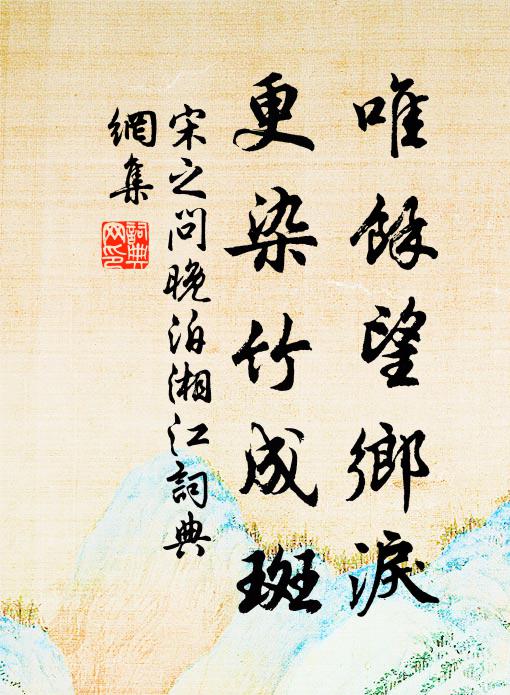 唯餘望鄉淚
更染竹成斑
宋之问晚泊湘江詞典
網集
詞典网印